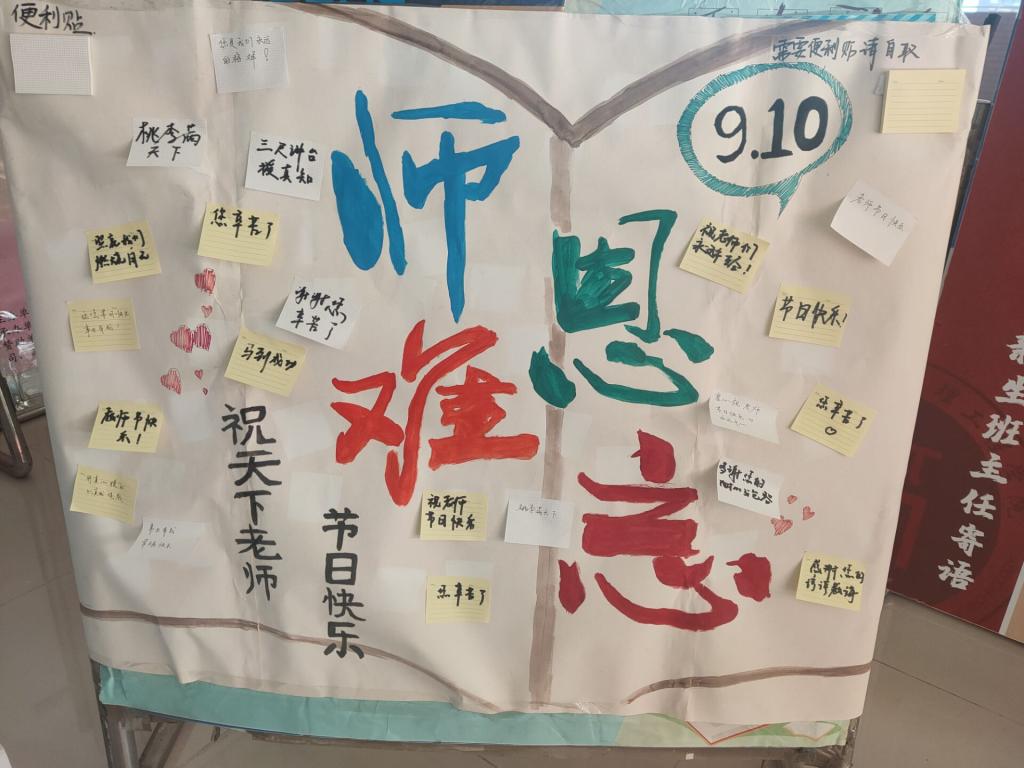 便利贴
需要便利贴请自取
9.10
师恩难忘
祝天下老师
节日快乐
您是我们永远
的榜样！
桃李满
天下
三尺讲台
授真知
您辛苦了
谢谢您
辛苦了
马到成功
教师节快
乐！
祝老师
节日快乐
桃李满天下
您辛苦了
祝老师们
永远年轻！
教师节日快乐
节日快乐！
您辛苦了
感谢您的
感谢您的
谆谆教诲
班主任寄语